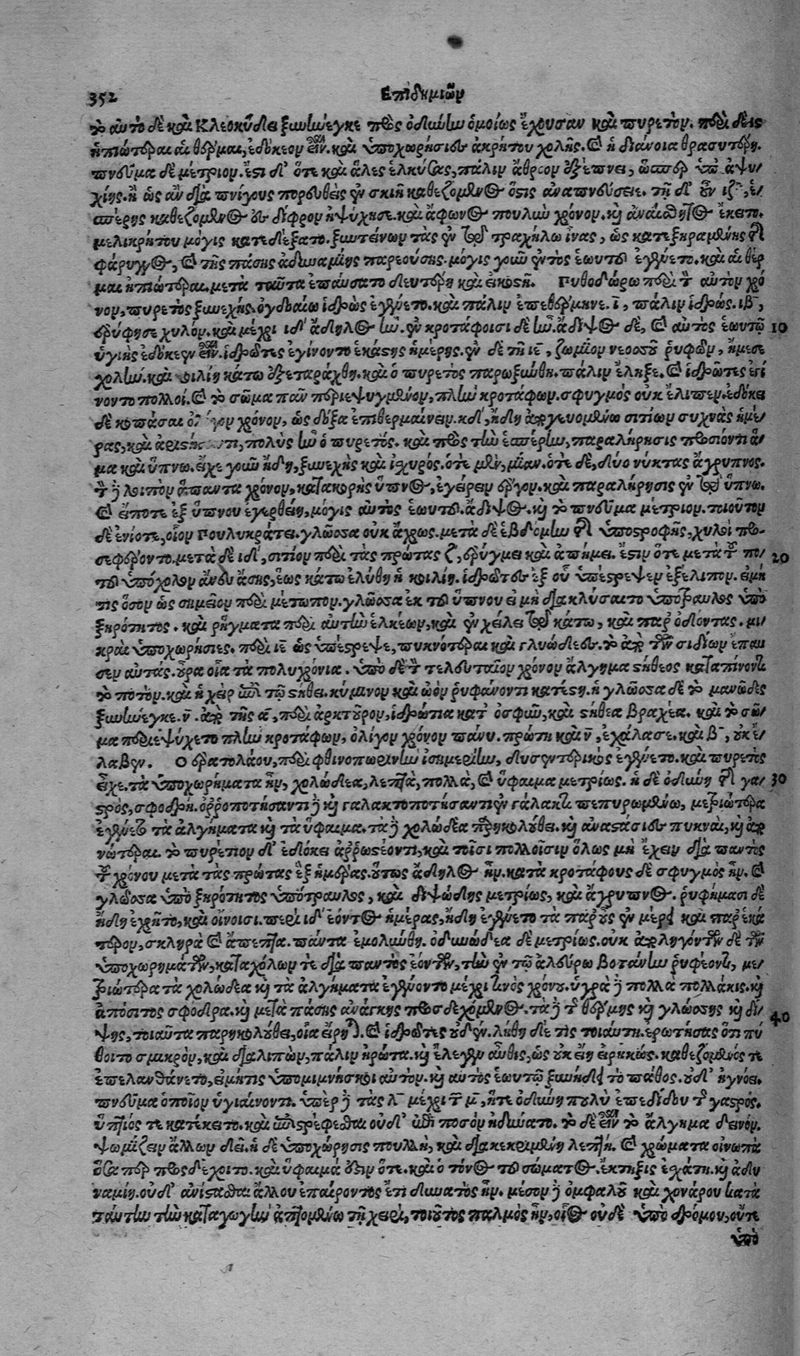 352 Ἐπιδημιῶν
τὸ αὐτὸ δὲ καὶ Κλεοκύδει ξυνήνεγκε πρὸς ὀδύνην ὁμοίως ἔχουσαν καὶ πυρετόν. περὶ δὲ ις
ἠπιώτεραι αἱ θέρμαι, ἐδόκεον εἶναι. καὶ ὑποχωρήσιες ἀκρήτου χολῆς. καὶ ἡ διάνοια θρασυτέρη.
πνεῦμα δὲ μέτριον. ἔστι δ' ὅτε καὶ ἅλες ἑλκύσας, πάλιν ἀθρόον ἐξέπνει, ὥσπερ ὑπ' ἀψυ-
χίης. ἢ ὡς ἂν διὰ πνίγους πορευθεὶς ἐν σκιῇ καθεζόμενος ὅστις ἀναπνεύσειε. τῇ δ' ἓν ιζ, ἑ-
σπέρης καθεζόμενος ἐν δίφρον ἠψύχησε. καὶ ἄφωνος πουλὺν χρόνον, καὶ ἀναίσθητος ἔκειτο.
μελίκρητον μόγις κατεδέξατο. ξυντείνων τὰς ἐν τῷ τραχήλῳ ἶνας, ὡς κατεξηραμένης τῆς
φάρυγγος, καὶ τῆς πάσης ἀδυναμίης παρεούσης. μόγις γοῦν ἐντὸς ἑωυτοῦ ἐγένετο. καὶ αἱ θέρ-
μαι ἠπιώτεραι. μετὰ ταῦτα ἐπαύσατο δευτέρῃ καὶ εἰκοστῇ. Πυθοδώρῳ περὶ τὸν αὐτὸν χρό-
νον, πυρετὸς ξυνεχής. ὀγδοαίῳ ἱδρὼς ἐγένετο. καὶ πάλιν ἐπεθέρμηνε. ι, πάλιν ἱδρώς. ιβ, 10
ἐρύφησε χυλόν. καὶ μέχρι ιδ ἄδηλος ἦν. ἐν κροτάφοισι δὲ ἦν. ἄδιψος δὲ, καὶ αὐτὸς ἑωυτῷ
ὑγιὴς ἐδόκεεν εἶναι. ἱδρῶτες ἐγίνοντο ἑκάστης ἡμέρης. ἐν δὲ τῇ ιε, ζωμὸν νεοσσοῦ ῥυφῶν, ἤμεσε
χολήν. καὶ κοιλίη κάτω ἐξεταράχθη. καὶ ὁ πυρετὸς παρωξύνθη. πάλιν ἔληξε. καὶ ἱδρῶτες ἐγί-
νοντο πολλοί. καὶ τὸ σῶμα πᾶν περιεψυγμένον, πλὴν κροτάφων. σφυγμὸς οὐκ ἔλιπεν. ἐδόκει
δὲ κοπάσαι ὀλίγον χρόνον, ὡς δόξα ἐπιθερμαίνειν. κδ, ἤδη ἀργευομένῳ σιτίων συχνὰς ἡμέ-
ρας, καὶ πολὺς ἦν ὁ πυρετός. καὶ πρὸς τὴν ἑσπέρην, παραλήρησις προσιόντι ἅ-
μα καὶ ὕπνῳ. εἶχε γοῦν ἤδη, ξυνεχὴς καὶ ἰσχυρός. ὁτὲ μὲν, μίαν. ὁτὲ δὲ, δύο νύκτας ἄγρυπνος.
τὸν δὲ λοιπὸν ἅπαντα χρόνον, κατακορὴς ὕπνος, ἐγείρειν ἔργον. καὶ παραλήρησις ἐν τῷ ὕπνῳ.
καὶ εἴποτε ἐξ ὕπνου ἐγερθείη, μόγις αὐτὸς ἑωυτοῦ. ἄδιψος. καὶ τὸ πνεῦμα μέτριον. τοιοῦτον
δὲ ἐνίοτε, οἷον Πουλυκράτει. γλῶσσα οὐκ ἄχρως. μετὰ δὲ ἑβδόμην τῆς ὑποστροφῆς, χυλοὶ προ-
σεφέροντο. μετὰ δὲ ιδ, σιτίον περὶ τὰς πρώτας ζ, ἐρύγμει καὶ ἀπήμει. ἔστιν ὅτε μετὰ τοῦ πο- 20
τοῦ ὑπόχολον ἄνευ ἄσης, ἕως κάτω ἐλύθη ἡ κοιλίη. ἱδρῶτες ἐξ οὗ ὑπέστρεψεν ἐξέλιπον. εἰ μή
τις ὅσον ὡς σημεῖον περὶ μέτωπον. γλῶσσα ἐκ τοῦ ὕπνου εἰ μὴ διακλύσαιτο ὑπότραυλος ὑπὸ
ξηρότητος. καὶ ῥήγματα περὶ αὐτὴν ἑλκέων, καὶ ἐν χείλει τῷ κάτω, καὶ παρ' ὀδόντας. μι-
κραὶ ὑποχωρήσιες. περὶ ιε ὡς ὑπέστρεψε, πυκνότεραι καὶ γλυώδεες. τὸ ἀπὸ τῶν σιδίων ἔπαυ-
σεν αὐτάς. οὖρα οἷα τὰ πολυχρόνια. ὑπὸ δὲ τὸν τελευταῖον χρόνον ἄλγημα στήθεος καταπίνοντι
τὸ ποτόν. καὶ ἡ χεὶρ ἐπὶ τῷ στήθει. κύμινον καὶ ὠὸν ῥυφάνοντι κατέστη. ἡ γλῶσσα δὲ τὸ μανῶδες
ξυνήνεγκε. ν. ἀπὸ τῆς α, περὶ ἀρκτοῦρον, ἱδρώτια κατ' ὀσφὺν, καὶ στήθεα βραχέα. καὶ τὸ σῶ-
μα περιεψύχετο πλὴν κροτάφων, ὀλίγον χρόνον πάνυ. πρώτῃ καὶ ν, ἐχάλασε. καὶ β, οὐκ ἔ-
λαβεν. Ὁ ἐρατολάου, περὶ φθινοπωρινὴν ἰσημερίην, δυσεντερικὸς ἐγένετο. καὶ πυρετὸς
εἶχε. τὰ ὑποχωρήματα ἦν, χολώδεα, λεπτὰ, πολλὰ, καὶ ὕφαιμα μετρίως. ἡ δὲ ὀδύνη τῆς γα- 30
στρὸς, σφοδρή. ὀρροποτήσαντι δὲ καὶ γαλακτοποτήσαντι ἐν γάλακτι πεπυρωμένῳ, μετριώτερα
ἐγένετο τὰ ἀλγήματα καὶ τὰ ὕφαιμα. τὰ δὲ χολώδεα παρηκολούθει. καὶ ἀναστάσιες πυκναὶ, καὶ ἀπο-
νώτεραι. τὸ πυρέτιον δ' ἐδόκει ἀρρωστέοντι, καὶ τοῖσι πολλοῖσιν ὅλως μὴ ἔχειν διὰ παντὸς
τοῦ χρόνου μετὰ τὰς πρώτας ἓξ ἡμέρας. οὕτως ἄδηλος ἦν. κατὰ κροτάφους δὲ σφυγμὸς ἦν. καὶ
γλῶσσα ὑπὸ ξηρότητος ὑπότραυλος, καὶ διψώδης μετρίως, καὶ ἄγρυπνος. ῥυφήμασι δὲ
ἤδη ἐχρῆτο, καὶ οἴνοισι. περὶ ιδ ἐόντος ἡμέρας, ἤδη ἐγένετο τὰ παρ' οὖς ἐν μέρει καὶ παρ' ἑκά-
τερον, σκληρὰ καὶ ἄπεπτα. πάντα ἐμολύνθη. ὀδυνώδεα δὲ μετρίως. οὐκ ἀποληγόντων δὲ τῶν
ὑποχωρημάτων, καταχόλων τε διὰ παντὸς ἐόντων, τὴν ἐν τῷ ἀλεύρῳ βοτάνην ῥυφέοντι, με-
τριώτερα τὰ χολώδεα καὶ τὰ ἀλγήματα ἐγένοντο μέχρι τινὸς χρόνου. ὑγρὰ δὲ πολλὰ πολλάκις. καὶ
ἀπόσιτος σφόδρα. καὶ μετὰ πάσης ἀνάγκης προσδεχόμενος. τὰ δὲ τῆς θέρμης καὶ γλώσσης καὶ δί-
ψης, τοιαῦτα παρηκολούθει, οἷα εἴρηται. καὶ ἱδρῶτες οὐδέν. λήθη δέ τις τοιαύτη. ἐρωτήσας ὅτι πύ- 40
θοιτο σμικρὸν, καὶ διαλιπὼν, πάλιν ἠρώτα. καὶ ἔλεγεν αὖθις, ὡς οὐκ εἴη εἰρηκώς. καθεζόμενός τε
ἐπελανθάνετο, εἰ μή τις ὑπομιμνήσκοι αὐτόν. καὶ αὐτὸς ἑωυτῷ ξυνῄδει τὸ πάθος. οὐδ' ἠγνόει.
πνεῦμα ὁποῖον ὑγιαίνοντι. ὑπὲρ δὲ τὰς λ μέχρι τῶν μ, ἥ τε ὀδύνη πουλὺ ἐπεδίδου τῆς γαστρός.
ὕπτιός τε κατέκειτο. καὶ ἐπιστρέφεσθαι οὐδ' ἐπὶ ποσὸν ἠδύνατο. τὸ δὲ εἶναι τὸ ἄλγημα δεινόν.
ψωμίζειν ἄλλον δεῖ. ἡ δὲ ὑποχώρησις πουλλὴ, καὶ διακεκριμένη λεπτή. καὶ χρώματα οἰνωπὰ
οἷά περ προσδέχοιτο. καὶ ὕφαιμα ἔστιν ὅτε. καὶ ὁ τόνος τοῦ σώματος. ἔκτηξις ἐσχάτη. καὶ ἀδυ-
ναμίη. οὐδ' ἀνίστασθαι ἄλλου ἐπαίροντος ἔτι δυνατὸς ἦν. μέσον δὲ ὀμφαλοῦ καὶ χονδρου κατὰ
ταύτην τὴν καταγωγὴν ἁπτομένῳ τῇ χειρὶ, τοιοῦτος παλμὸς ἦν, οἷος οὐδὲ ὑπὸ δρόμου, οὔτε
ὑπὸ